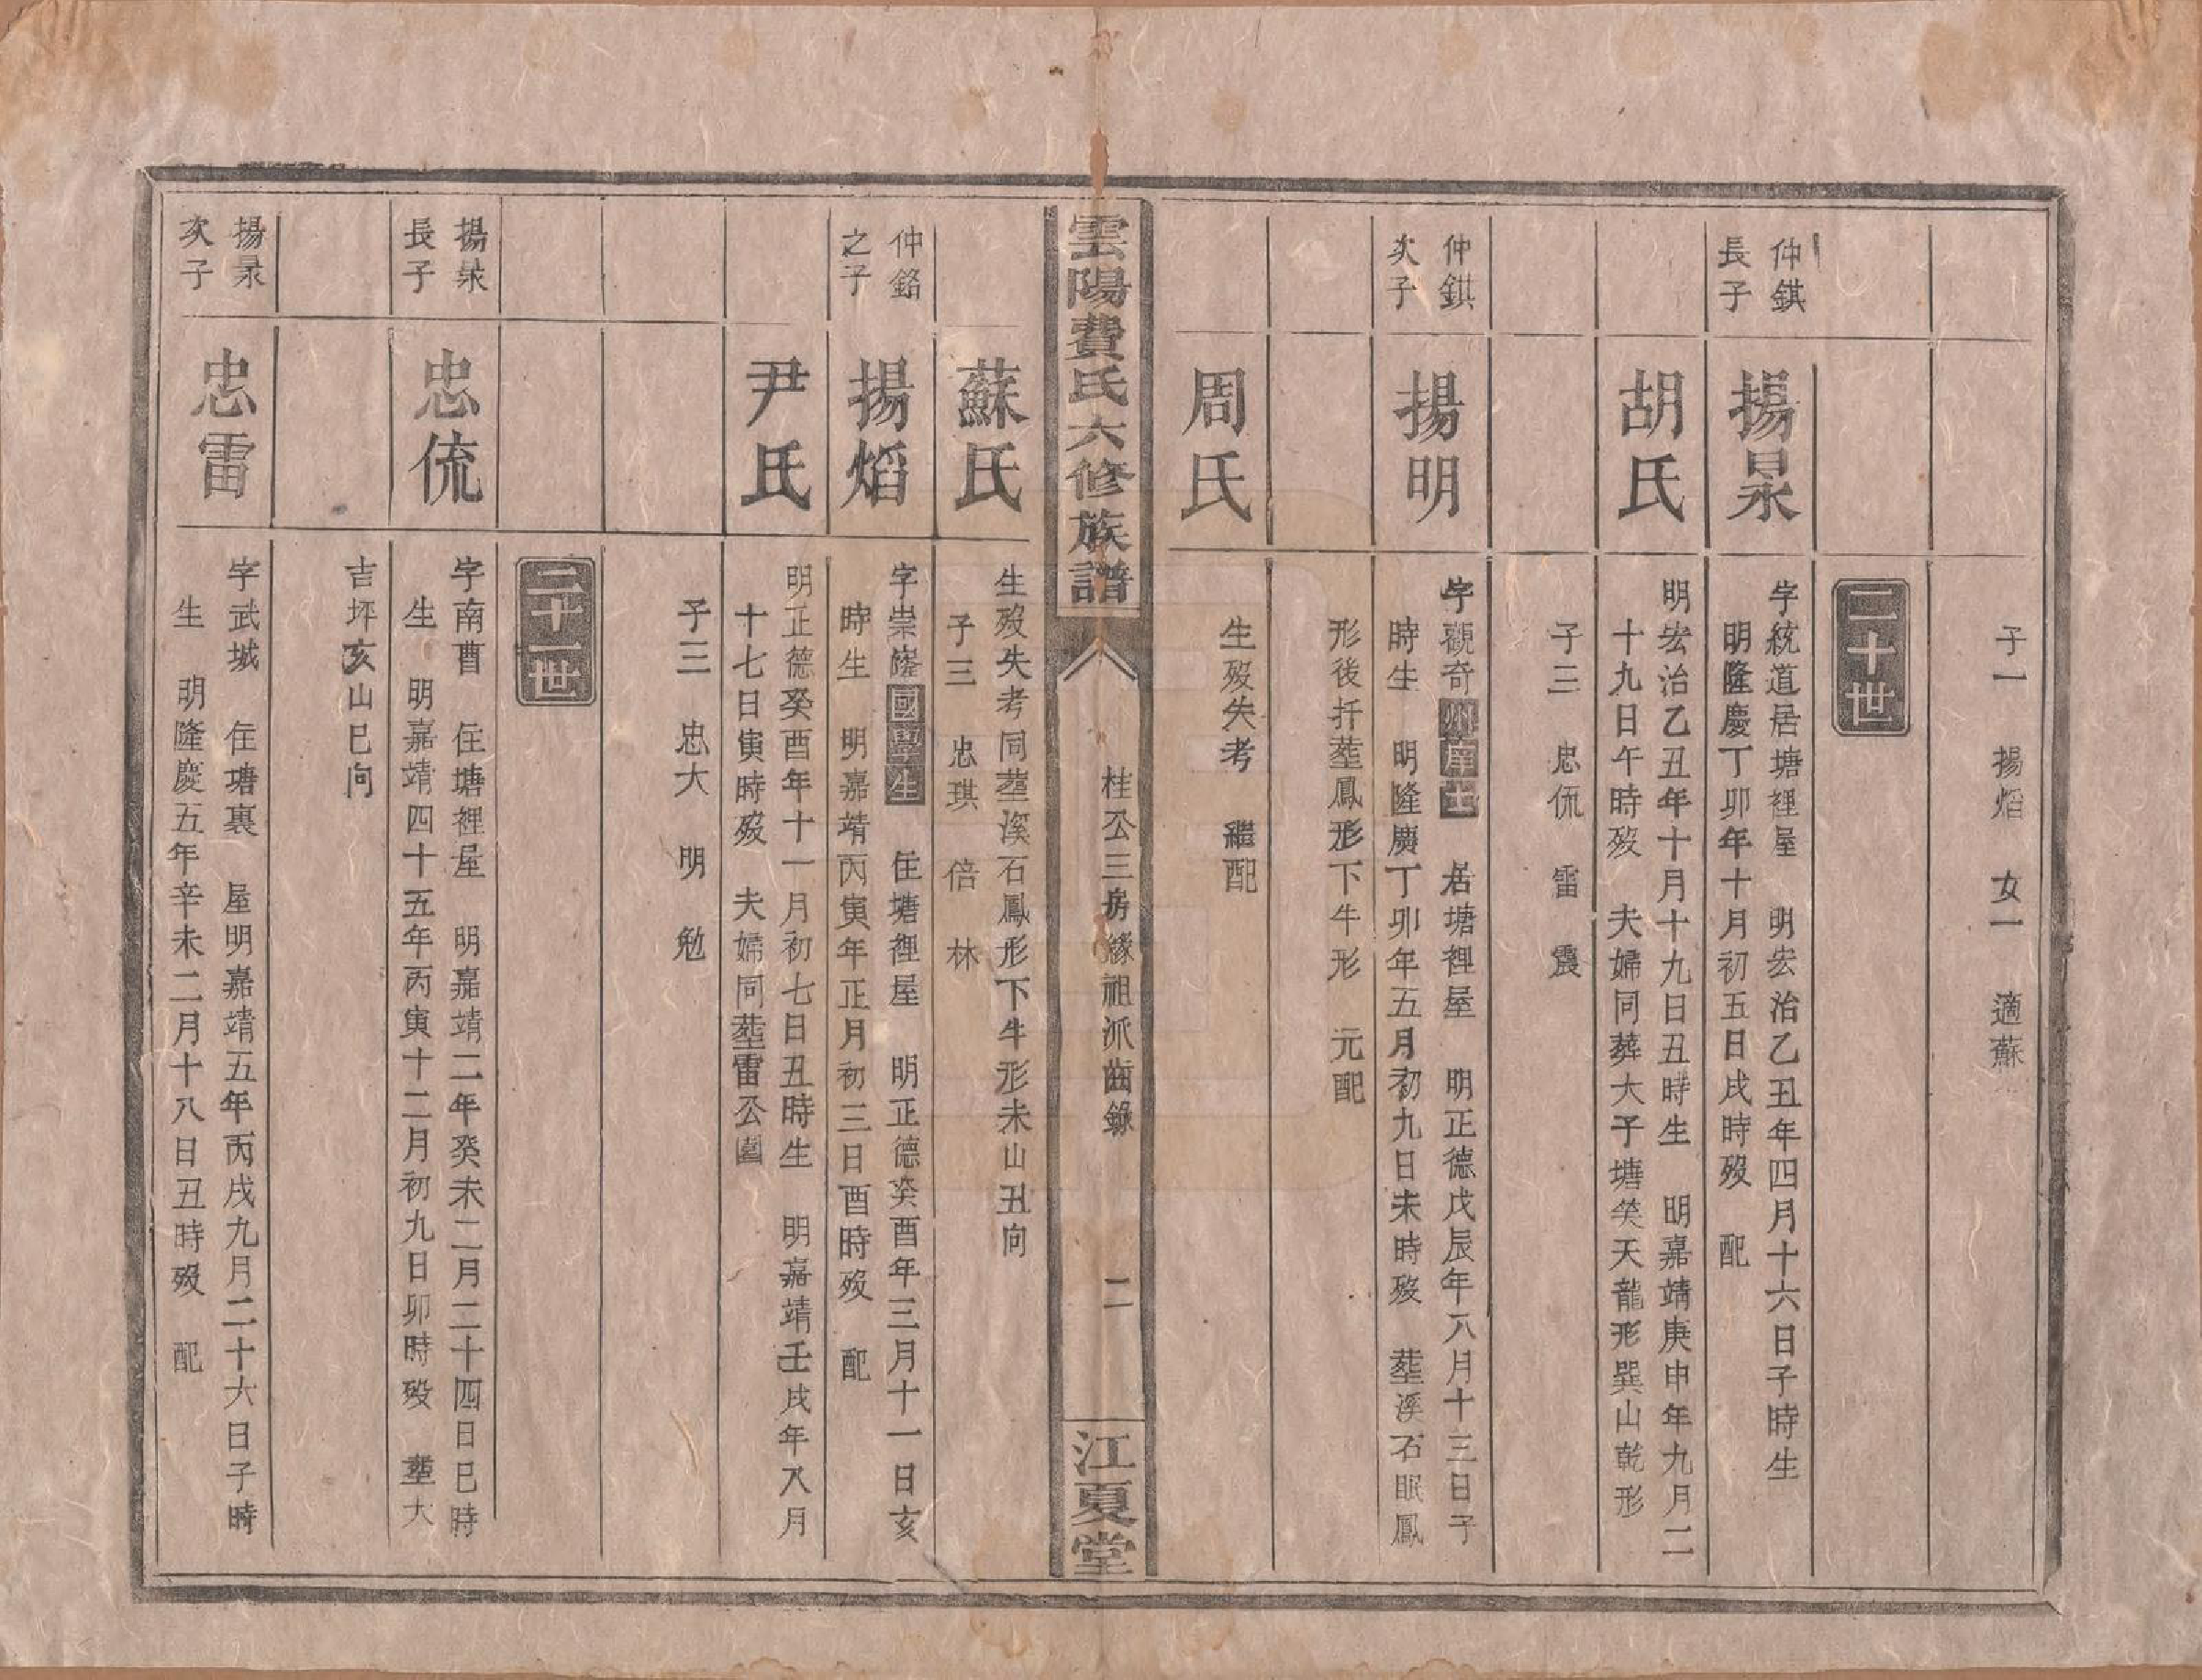 子一　揚熖　女一　適蘇
二十世
仲錤
長子
揚㫟
字統道居塘裡屋　明宏治乙丑年四月十六日子時生
明隆慶丁卯年十月初五日戌時歿　配
胡氏
明宏治乙丑年十月十九日丑時生　明嘉靖庚申年九月二
十九日午時歿　夫婦同葬大子塘笑天龍形巽山乾形
子三　忠㳘　雷　震
仲錤
次子
揚明
字觀奇州庠士　居塘裡屋　明正德戊辰年八月十三日子
時生　明隆慶丁卯年五月初九日未時歿　塟溪石眠鳳
形後扦塟鳳形下牛形　元配
周氏
生歿失考　繼配
雲陽費氏六修族譜
桂公三房緣祖派齒錄
二
江夏堂
蘇氏
生歿失考同塟溪石鳳形下牛形未山丑向
子三　忠琪　倍　林
仲銘
之子
揚熖
字崇㠠國學生　住塘裡屋　明正德癸酉年三月十一日亥
時生　明嘉靖丙寅年正月初三日酉時歿　配
尹氏
明正德癸酉年十一月初七日丑時生　明嘉靖壬戌年八月
十七日寅時歿　夫婦同塟雷公園
子三　忠大　明　勉
二十一世
揚㫟
長子
忠㳘
字南曹　住塘裡屋　明嘉靖二年癸未二月二十四日巳時
生　明嘉靖四十五年丙寅十二月初九日卯時歿　塟大
吉坪亥山巳向
揚㫟
次子
忠雷
字武城　住塘裏　屋明嘉靖五年丙戌九月二十六日子時
生　明隆慶五年辛未二月十八日丑時歿　配